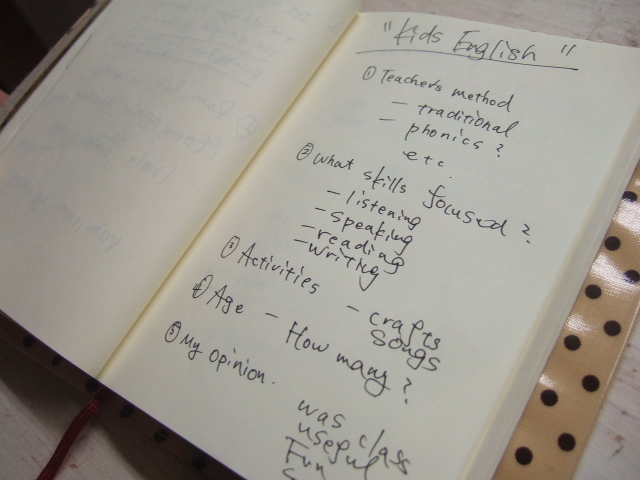 "Kids English"
① Teachers method
– traditional
– phonics?
etc.
② What skills focused?
– listening
– speaking
– reading
– writing
③ Activities – crafts
songs
④ Age – How many?
⑤ My opinion.
was class
useful
Fun